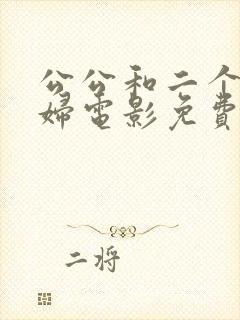 公公和二个
婦電影免費
二将